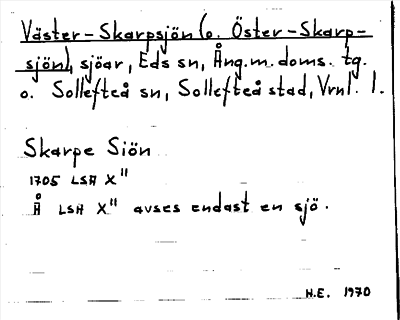 Väster-Skarpsjön (o. Öster-Skarp-
sjön), sjöar, Eds sn, Ång.m.doms. tg.
o. Sollefteå sn, Sollefteå stad, Vrnl. l.
Skarpe Siön
1705 LSA X"
Å LSA X" avses endast en sjö.
H.E. 1970